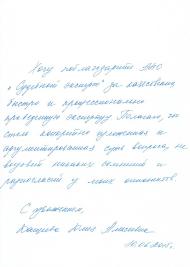 Хочу поблагодарить АНО
"Судебный эксперт" за качественно,
быстро и профессионально
проведенную экспертизу. Полагаю, что
столь конкретно изложенная и
аргументированная суть вопроса, не
вызовет никаких сомнений и
разногласий у моих оппонентов.
С уважением,
Юлия Алексеевна